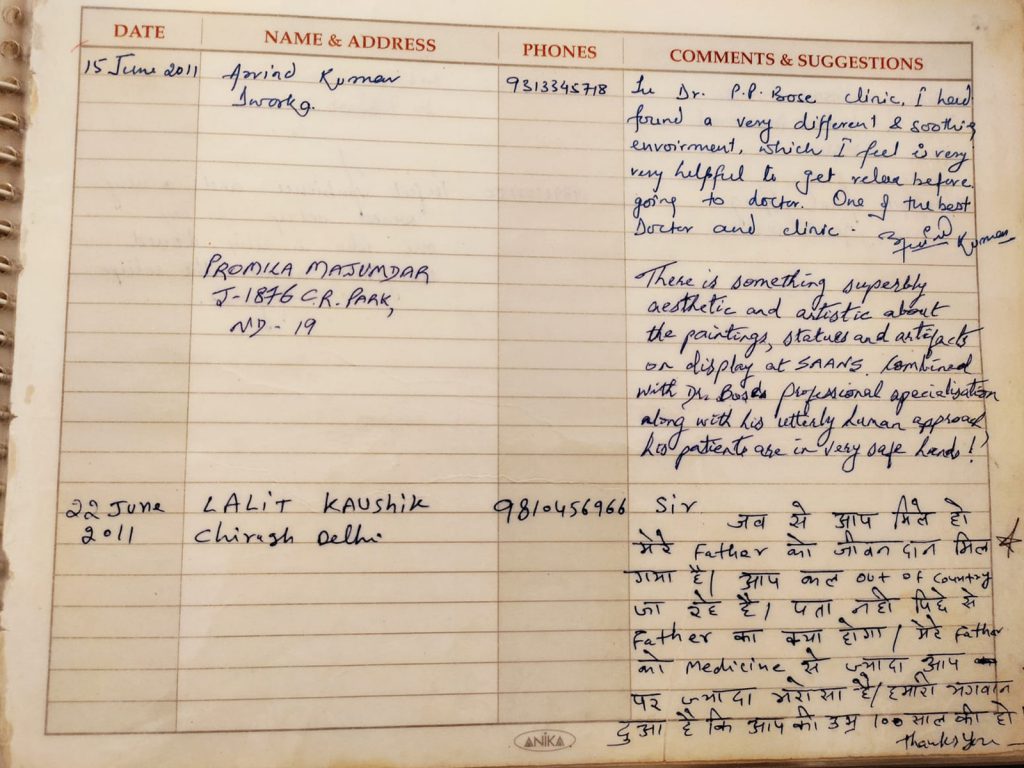 DATE NAME & ADDRESS PHONES COMMENTS & SUGGESTIONS
15 June 2011 Arvind Kumar 9313345718 In Dr. P.P. Bose clinic, I had
Dworka.
found a very different & soothing
envoirment, which I feel is very
very helpful to get relax before
going to doctor. One of the best
Doctor and clinic.
Kumar
PROMILA MAJUMDAR
J-1876 C.R. PARK,
ND - 19
There is something superbly
aesthetic and artistic about
the paintings, statues and artifacts
on display at SAANS. Combined
with Dr. Bose's professional specialisation
along with his utterly human approach,
his patients are in very safe hands!
22 June 2011 LALIT KAUSHIK 9810456966
Chiragh Delhi
Sir
जब से आप मिले हो
मेरे Father को जीवन दान मिल
गया है। आप कल out of country
जा रहे है। पता नही पिछे से
Father का क्या होगा। मेरे Father
को Medicine से ज्यादा आप
पर ज्यादा भरोसा है। हमारी भगवान
दुआ है कि आप की उम्र 100 साल की हो।
thanks you
ANIKA